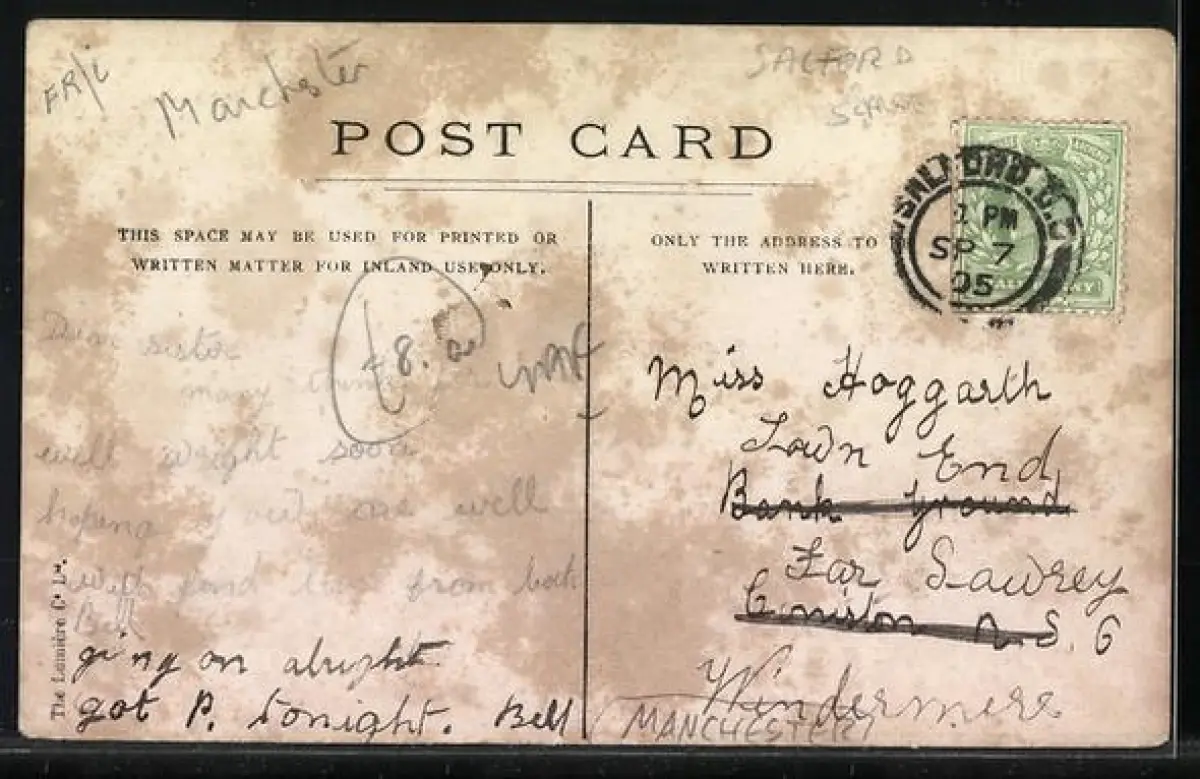 FR/L
Manchester
SALFORD
POST CARD
THIS SPACE MAY BE USED FOR PRINTED OR
WRITTEN MATTER FOR INLAND USE ONLY.
ONLY THE ADDRESS TO
WRITTEN HERE.
SALFORD
PM
SP 7
05
Dear sister
many thanks
will wright soon
hoping you are well
with fond love from
Bell
going on alright
got P. tonight. Bell
Miss Hoggarth
Town End
Bank Ground
Far Sawrey
Coniston
Windermere
MANCHESTER
The Lumière Co Ld.